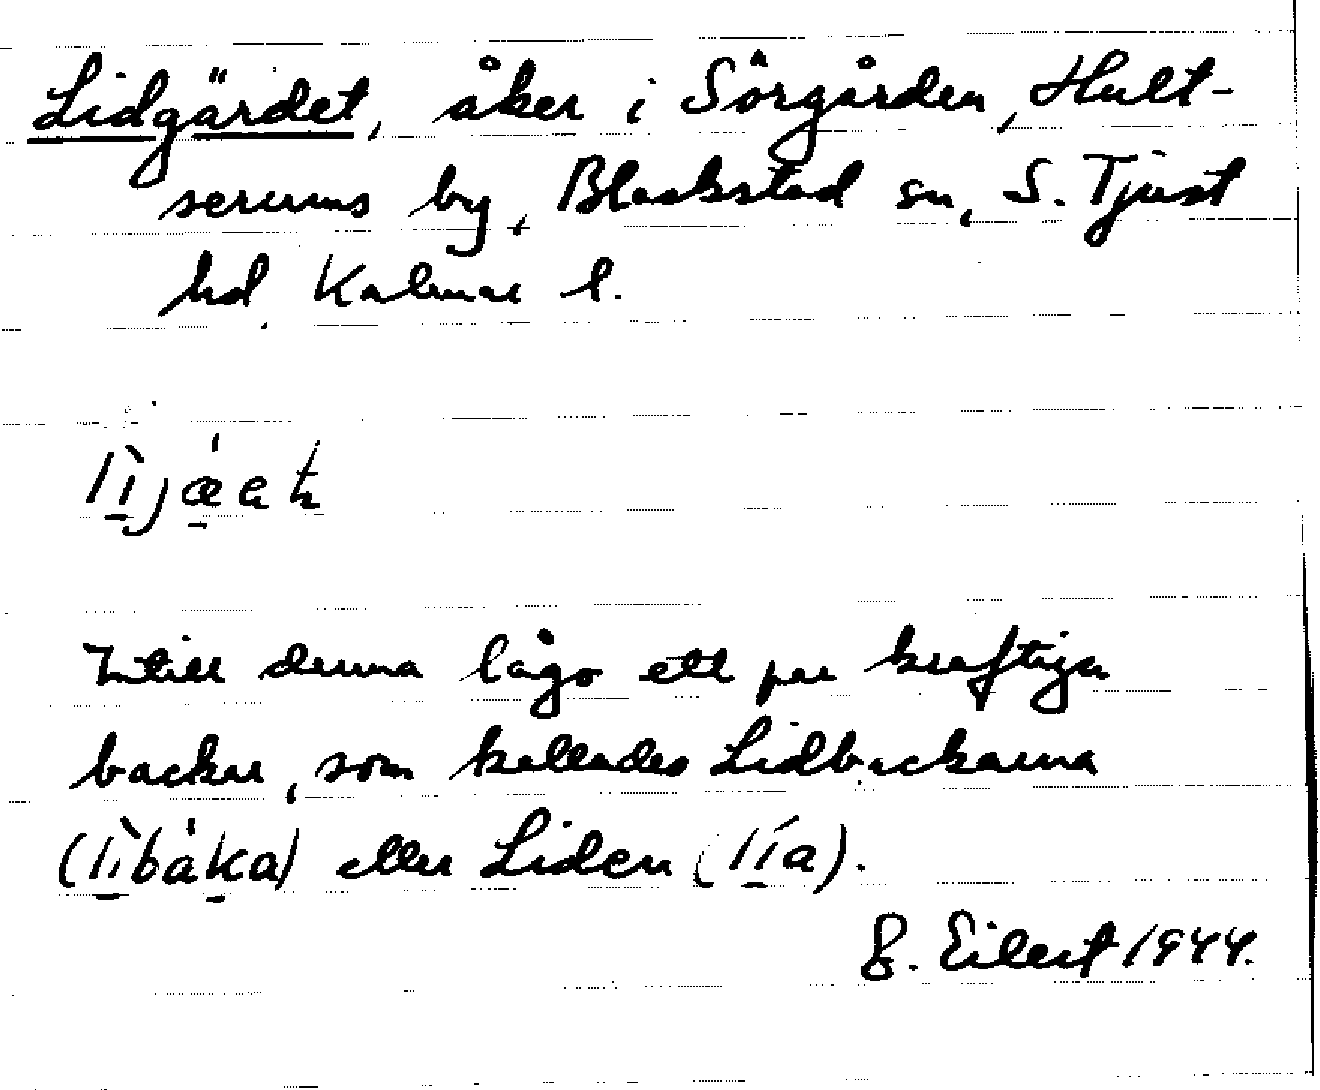 Lidgärdet, åker i Sörgården, Hult-
serums by, Blackstad sn, S. Tjust
hd, Kalmar l.
Intill denna lågo ett par kraftiga
backar, som kallades Lidbackarna
(lìbàka) eller Liden (lía).
E. Eilert 1944.